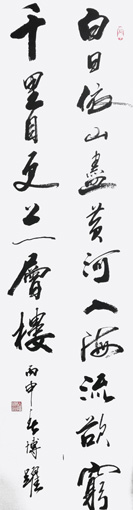 白日依山盡黃河入海流欲窮
千里目更上一層樓
丙申 博躍